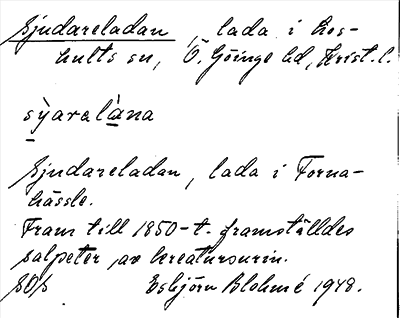 Sjudareladan, lada i Los-
hults sn, Ö. Göinge hd, Krist. l.
sỳaralàna
Sjudareladan, lada i Torna-
hässle.
Fram till 1850-t. framställdes
salpeter av kreatursurin.
SOS Esbjörn Blohmé 1948.